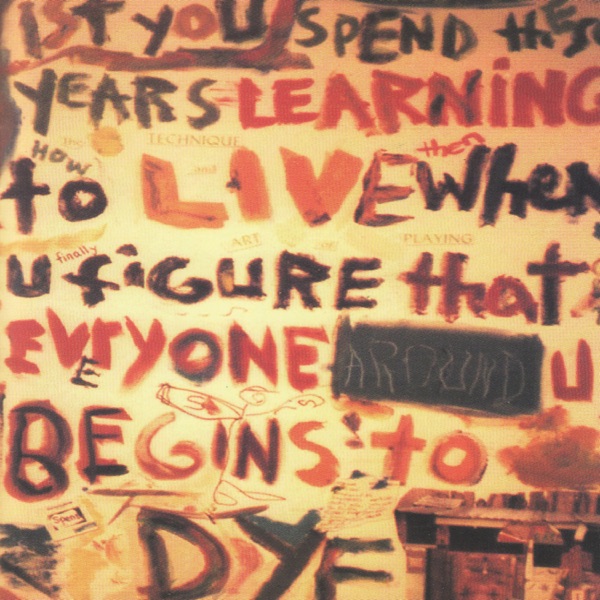 1ST YOU SPEND thESE
YEARS LEARNiNG
The TECHNIQUE
HOW and then
to LIVE WheN
ART OF PLAYING
finally
U fiGURE that
EVERYONE AROUND U
BEGiNS to
Spend
DYE